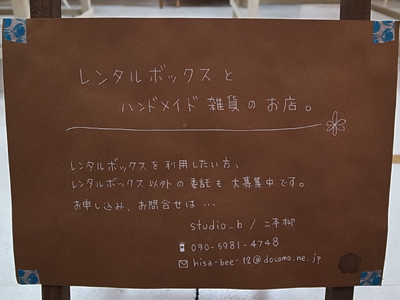 レンタルボックスと
ハンドメイド雑貨のお店。
レンタルボックスを利用したい方、
レンタルボックス以外の委託も大募集中です。
お申し込み、お問合せは…
studio_b / 二平柳
090-5981-4748
hisa-bee-12@docomo.ne.jp